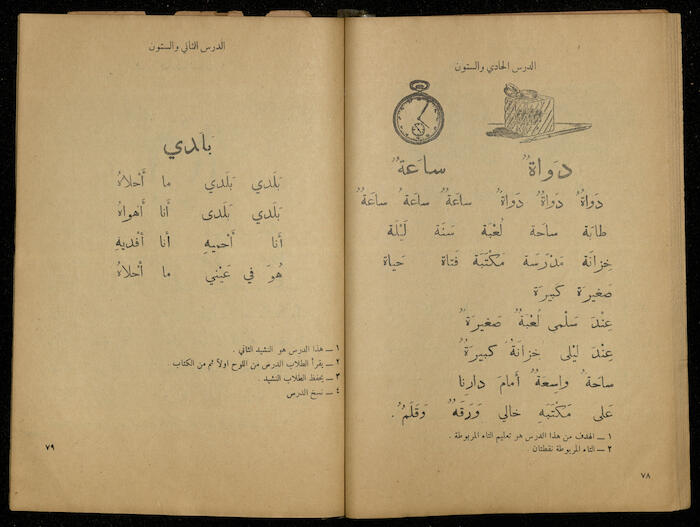 الدرس الحادي والستون
دَواةٌ ساعَةٌ
دَواةُ دَواةٌ دَواةٌ ساعَةٌ ساعَةُ ساعَةٌ
طابَة ساحَة لُعْبَة سَنَة لَيْلَة
خِزانَة مَدْرَسَة مَكْتَبَة فَتاة حَياة
صَغيرَة كَبيرَة
عِنْدَ سَلْمى لُعْبَةٌ صَغيرَةٌ
عِنْدَ لَيْلى خِزانَةٌ كَبيرَةٌ
ساحَةٌ واسِعَةٌ أَمامَ دارِنا
عَلى مَكْتَبَهِ خالي وَرَقَةٌ وَقَلَمٌ.
١ ــ الهدف من هذا الدرس هو تعليم التاء المربوطة .
٢ ــ التاء المربوطة نقطتان .
٧٨
الدرس الثاني والستون
بَلَدي
بَلَدي بَلَدي ما أَحْلاهُ
بَلَدي بَلَدى أَنا أَهْواهُ
أَنا أَحْميهِ أَنا أَفْديهِ
هُوَ في عَيْني ما أَحْلاهُ
١ ــ هذا الدرس هو النشيد الثاني .
٢ ــ يقرأ الطلاب الدرس من اللوح اولاً ثم من الكتاب .
٣ ــ يحفظ الطلاب النشيد .
٤ ــ نسخ الدرس
٧٩